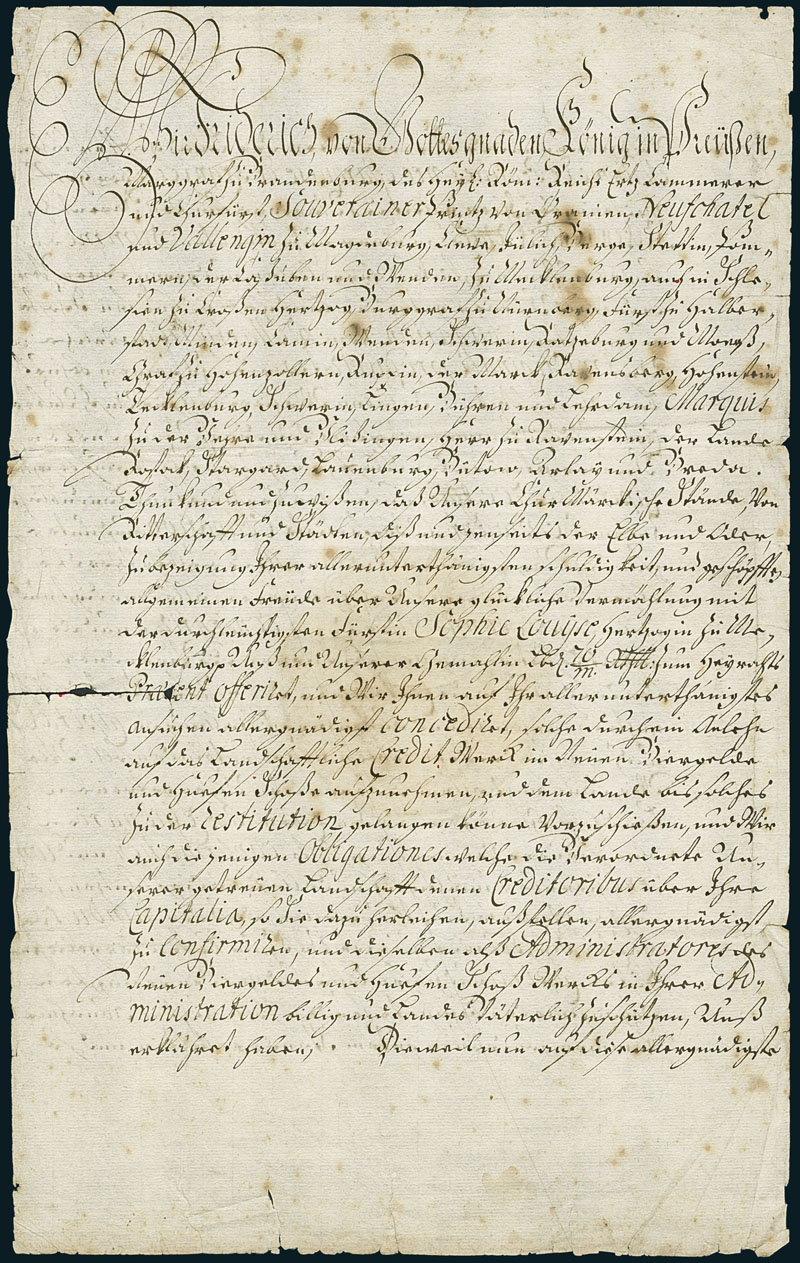 Wir Friderich, von Gottes gnaden, König in Preüßen,
Marggraf zu Brandenburg, des Heyl: Röm: Reichs Ertz Cammerer
und Churfürst, Souverainer Printz von Oranien, Neufchatel
und Vallengin, zu Magdeburg, Cleve, Jülich, Berge, Stettin, Pom-
mern, der Caßuben und Wenden, zu Mecklenburg, auch in Schle-
sien zu Croßen Hertzog, Burggraf zu Nürnberg, Fürst zu Halber-
stadt, Minden, Camin, Wenden, Schwerin, Ratzeburg und Moerß,
Graf zu Hohenzollern, Ruppin, der Marck, Ravensberg, Hohenstein,
Tecklenburg, Schwerin, Lingen, Bühren und Lehrdam, Marquis
zu der Vehre und Vlißingen, Herr zu Ravenstein, der Lande
Rostock, Stargard, Lauenburg, Bütow, Arlay und Breda.
Thun kund und zu wißen, daß Unsere Chur Märckische Stände, von
Ritterschafft und Städten, diß und jenseits der Elbe und Oder,
zu bezeigung Ihrer allerunterthänigsten schuldigkeit, und geschöpfften
allgemeinen Freüde über Unsere glückliche Vermählung mit
der durchleüchtigsten Fürstin Sophie Louyse, Hertzogin zu Me-
cklenburg Unß und Unserer Gemahlin Lbd. 20/m. Rthlr: zum Heyrahts
Præsent offeriret, und Wir Ihnen auf Ihr allerunterthänigstes
ansuchen allergnädigst concediret, solche durch ein Anlehn
auf das Landschafftliche Credit Werck im Neuen Biergelde
und Huefen Schoße aufzunehmen, und dem Lande bis solches
zu der restitution gelangen könne vorzuschießen, und Wir
auch diejenigen Obligationes welche die Verordnete Un-
serer getreüen Landschafft denen Creditoribus über Ihre
Capitalia, so Sie dazu herleihen, außstellen, allergnädigst
zu confirmiren, und dieselben alß Administratores des
Neüen Biergeldes und Huefen Schoß Wercks in Ihrer Ad-
ministration billig und Landes Väterlich zu schützen, Unß
erklähret haben, Dieweil nun auf diese allergnädigste